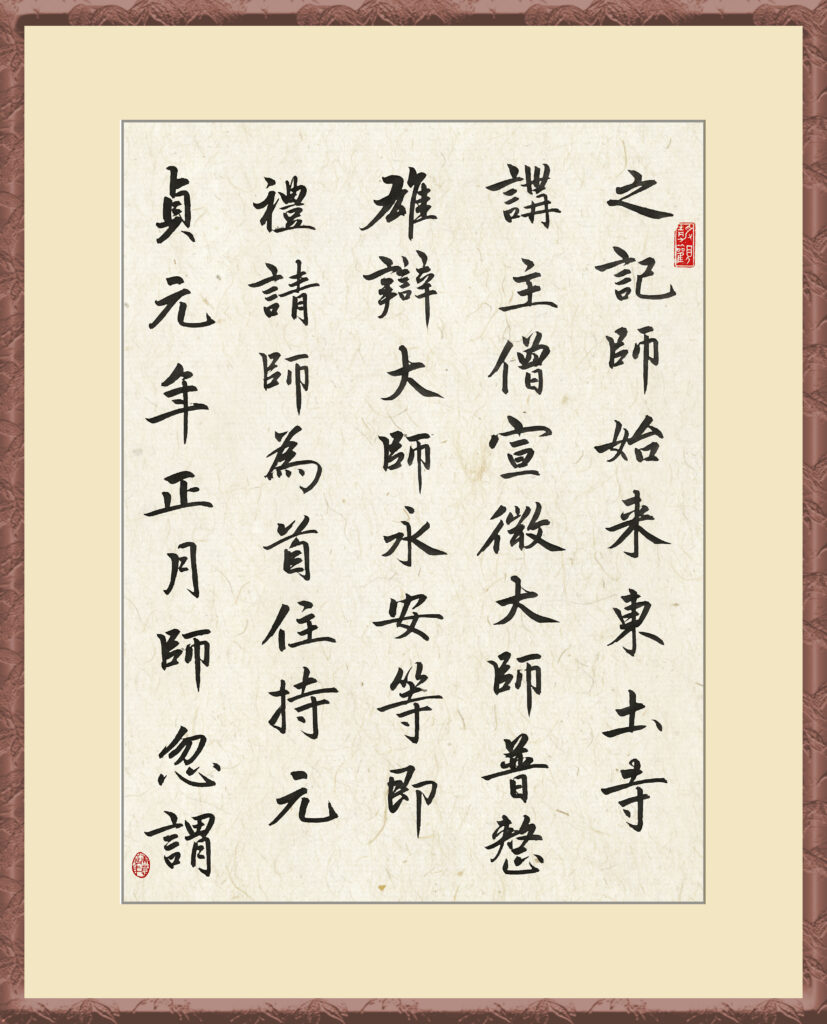 之記師始来東土寺
講主僧宣微大師普整
雄辯大師永安等即
禮請師為首住持元
貞元年正月師忽謂